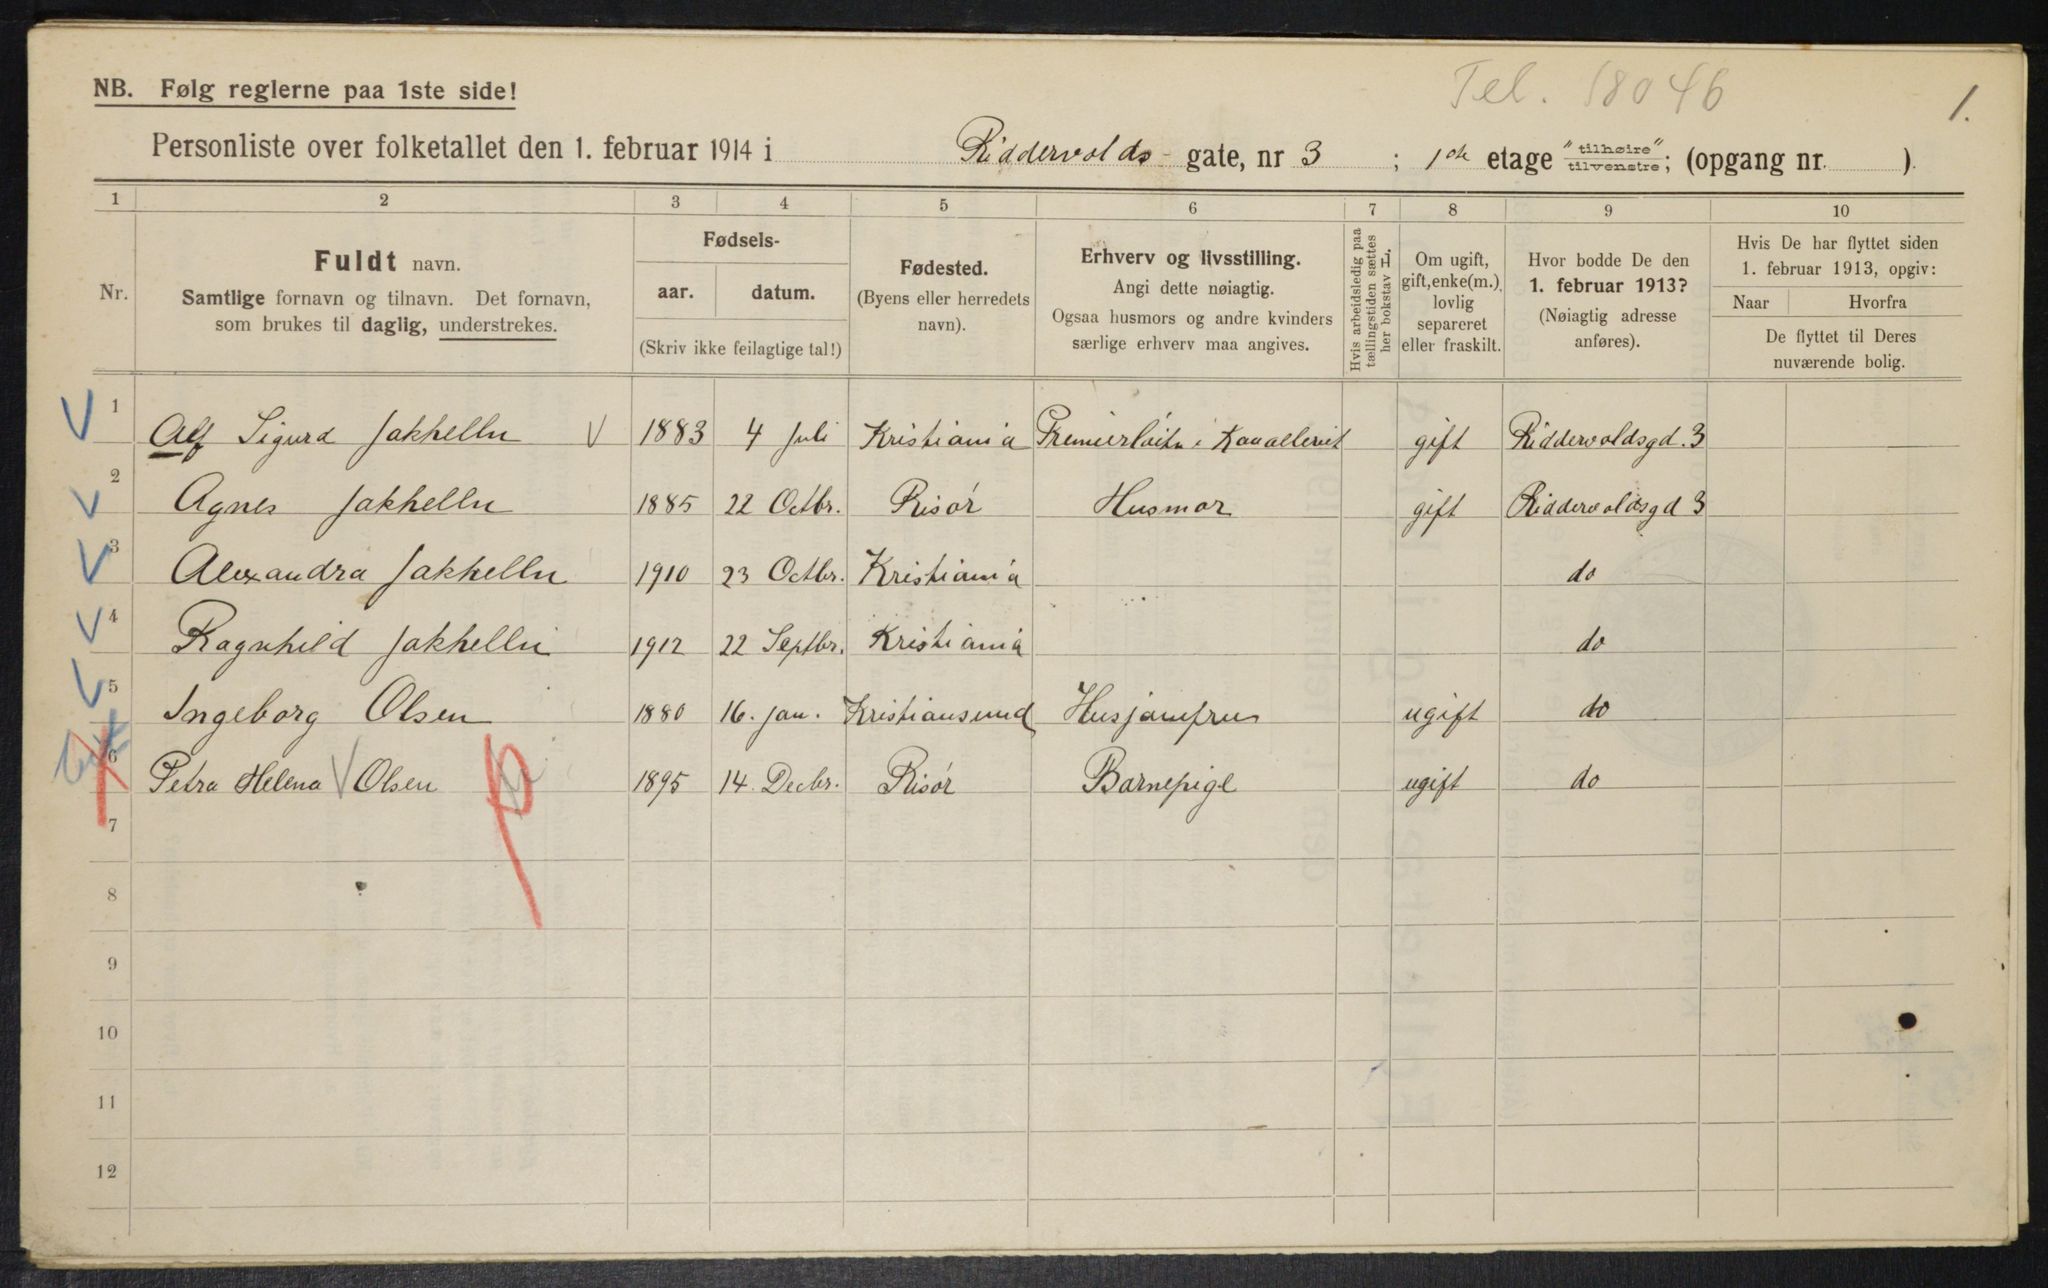 Tel. 18046
1.
NB. Følg reglerne paa 1ste side!
Personliste over folketallet den 1. februar 1914 i Riddervolds gate, nr 3 ; 1ste etage "tilhøire" tilvenstre; (opgang nr. ).
1 2 3 4 5 6 7 8 9 10
Nr.
Fuldt navn.
Samtlige fornavn og tilnavn. Det fornavn,
som brukes til daglig, understrekes.
Fødsels-
aar. datum.
(Skriv ikke feilagtige tal!)
Fødested.
(Byens eller herredets
navn).
Erhverv og livsstilling.
Angi dette nøiagtig.
Ogsaa husmors og andre kvinders
særlige erhverv maa angives.
Hvis arbeidsledig paa
tællingstiden sættes
her bokstav L.
Om ugift,
gift, enke(m.),
lovlig
separeret
eller fraskilt.
Hvor bodde De den
1. februar 1913?
(Nøiagtig adresse
anføres).
Hvis De har flyttet siden
1. februar 1913, opgiv:
Naar Hvorfra
De flyttet til Deres
nuværende bolig.
1 Alf Sigurd Jakhelln 1883 4 Juli Kristiania Premierløitn i Kavalleriet gift Riddervoldsgd. 3
2 Agnes Jakhelln 1885 22 Octbr. Risör Husmor gift Riddervoldsgd 3
3 Alexandra Jakhelln 1910 23 Octbr. Kristiania do
4 Ragnhild Jakhelln 1912 22 Septbr. Kristiania do
5 Ingeborg Olsen 1880 16. Jan. Kristiansund Husjomfru ugift do
6 Petra Helena Olsen 1895 14. Decbr. Risör Barnepige ugift do
7
8
9
10
11
12